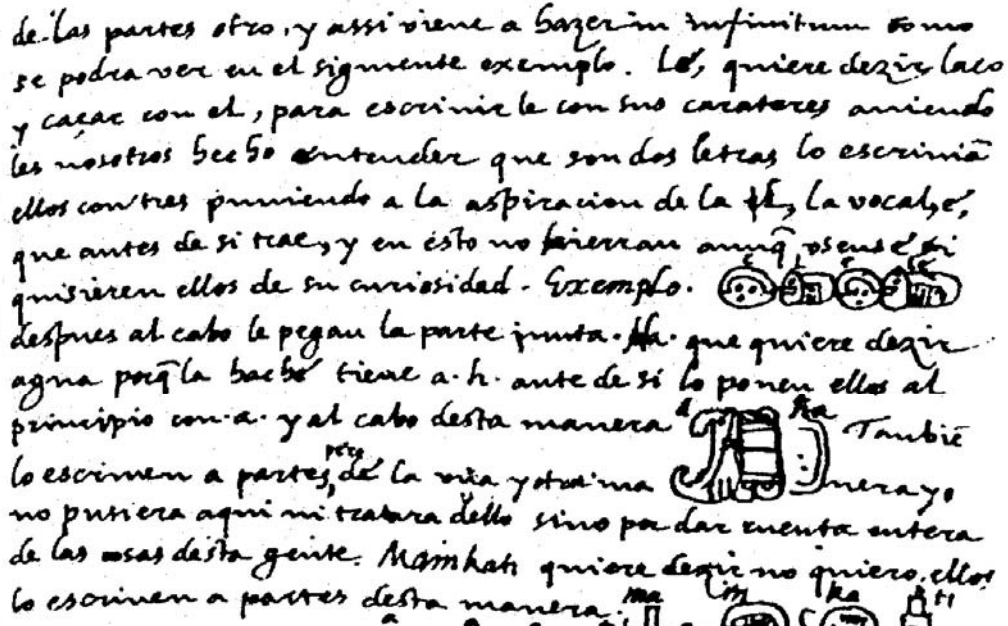 de las partes otro, y assi viene a hazer in infinitum como
se podra ver en el siguiente exemplo. Lé, quiere dezir laço
y caçar con el, para escrivirle con sus carateres aviendo
les nosotros hecho entender que son dos letras lo escriviã
ellos con tres puniendo a la aspiracion de la l, la vocal, é,
que antes de si trae, y en esto no hierran aunq̃ usense si
quisieren ellos de su curiosidad. Exemplo. e l e lé
despues al cabo le pegan la parte junta. Ha. que quiere dezir
agua porq̃ la hache tiene a. h. ante de si lo ponen ellos al
principio con. a. y al cabo desta manera a ha Tambiẽ
lo escriven a partes, pero de la una y otra ma nera yo
no pusiera aqui ni tratara dello sino por dar cuenta entera
de las cosas desta gente. Mainkati quiere dezir no quiero, ellos
lo escriven a partes desta manera: ma in ka ti